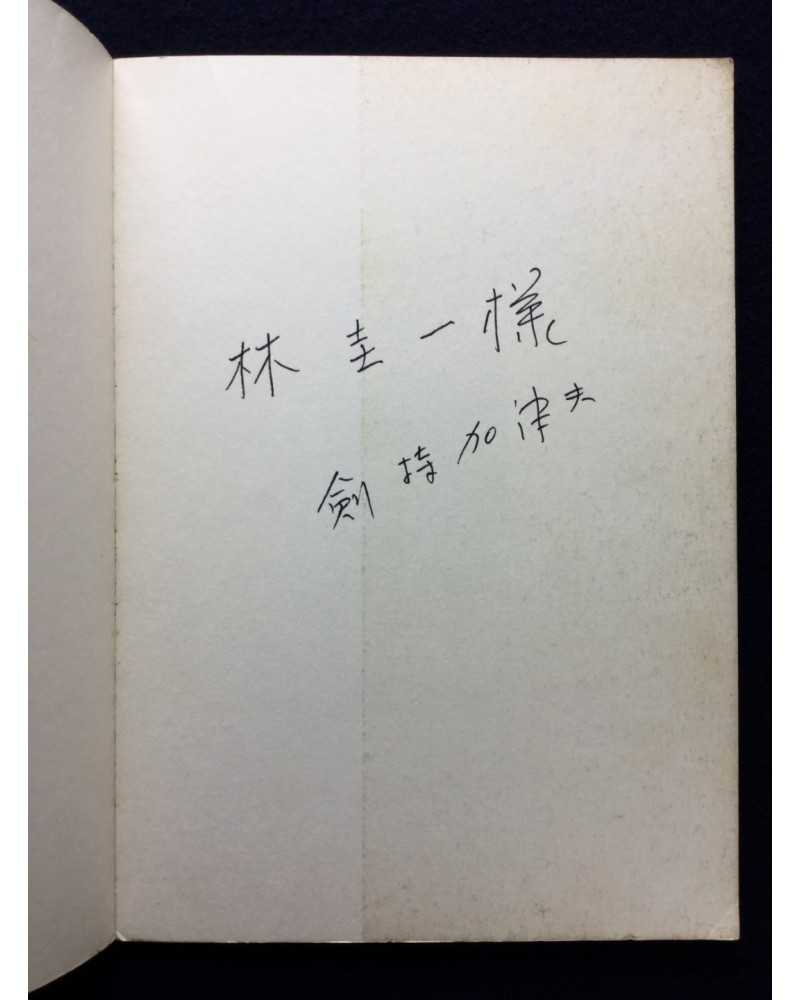 林圭一様
劍持加津夫